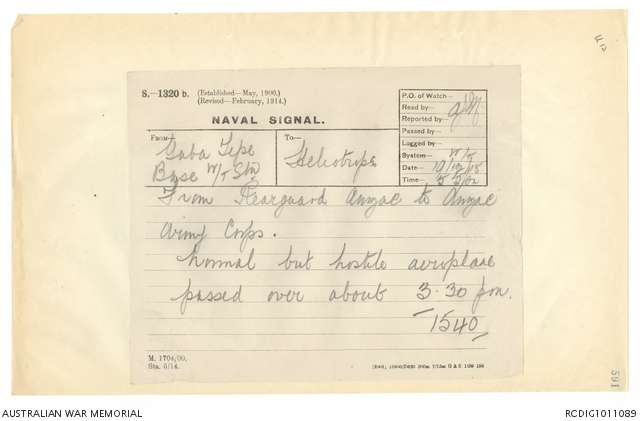 S.—1320 b. (Established—May, 1900.)
(Revised—February, 1914.)
NAVAL SIGNAL.
P.O. of Watch—
Read by—
Reported by—
Passed by—
Logged by—
System— W/T
Date— 19/12/15
Time—
From— Gaba Tepe
Base W/T Stn
To— Heliotrope
From Rearguard Anzac to Anzac
Army Corps.
Normal but hostile aeroplane
passed over about 3.30 pm.
1540
M. 1704/00.
Sta. 6/14.
591
AUSTRALIAN WAR MEMORIAL
RCDIG1011089